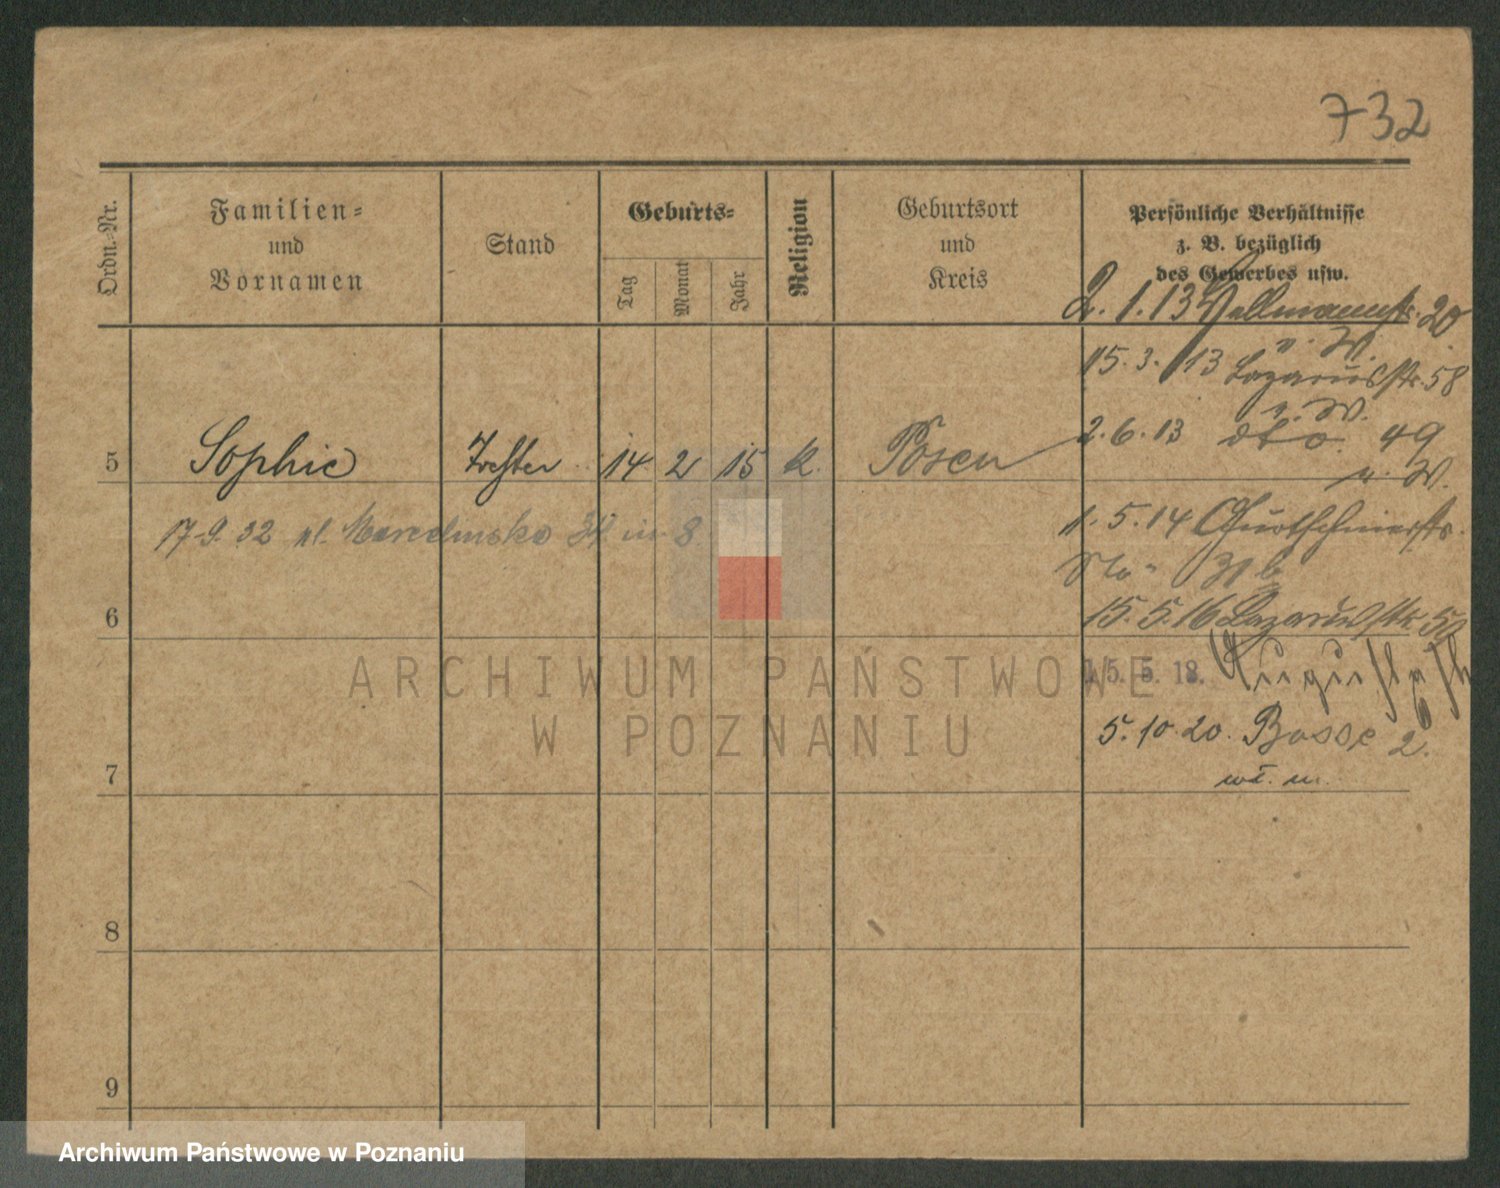 732
Ordn.-Nr.
Familien-
und
Vornamen
Stand
Geburts-
Tag
Monat
Jahr
Religion
Geburtsort
und
Kreis
Persönliche Verhältnisse
z. B. bezüglich
des Gewerbes usw.
2. 1. 13 20
15. 3. 13 Lazarusstr. 58
2. 6. 13 dto. 49
5 Sophie Tochter 14 2 15 k. Posen
17-9. 32 ul. Marcelinska 8
1. 5. 14
6
15. 5. 16 Lazarusstr. 50
15. 5. 18.
5. 10 20. Bosse 2.
7
8
9
ARCHIWUM PAŃSTWOWE
W POZNANIU
Archiwum Państwowe w Poznaniu